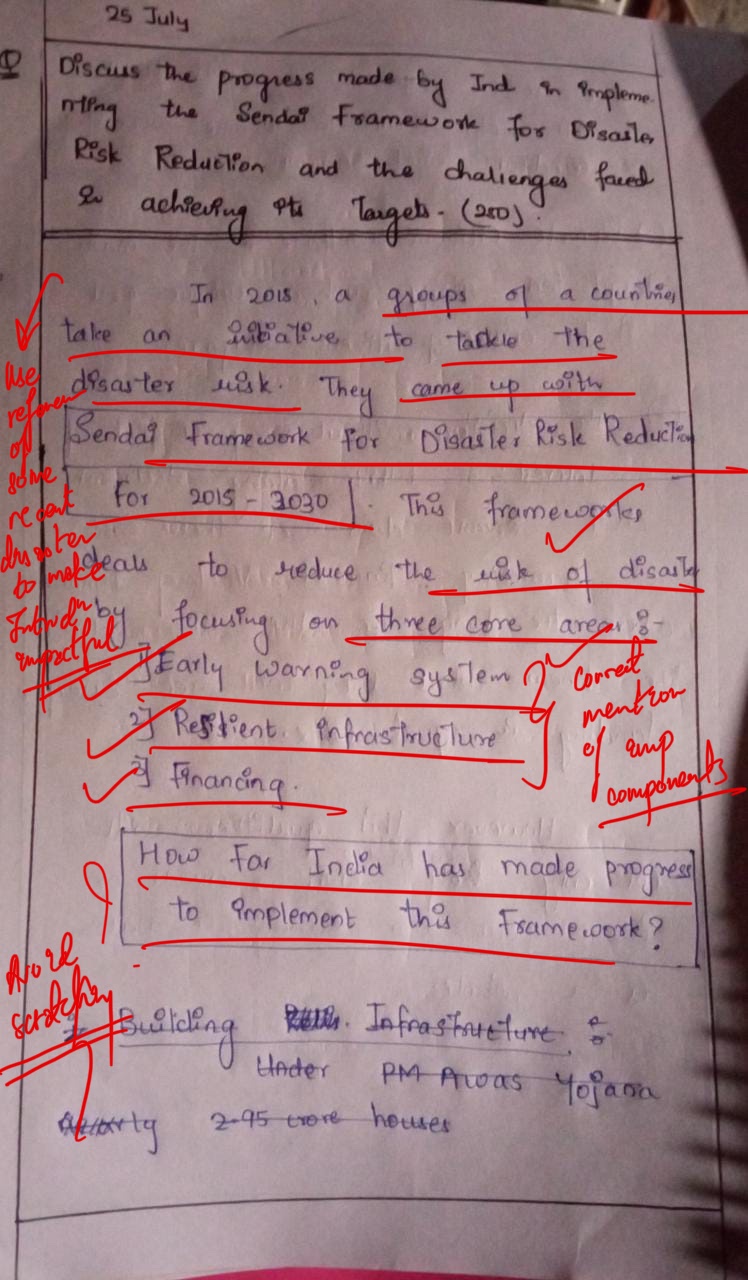 25 July
Q Discuss the progress made by Ind in impleme
nting the Sendai Framework for Disaster
Risk Reduction and the challenges faced
in achieving its Targets. (250).
In 2015, a groups of a countries
take an initiative to tackle the
disaster risk. They came up with
Sendai Framework for Disaster Risk Reduction
For 2015 - 2030. This frameworks
deals to reduce the risk of disaster
by focusing on three core areas :-
1] Early warning system
2] Resilient infrastructure
3] Financing.
Use
reference
of
some
recent
disaster
to make
Introdn
impactful
Correct
mention
of imp
components
How far India has made progress
to implement this Framework?
Avoid
scratching
Building Infrastructure :-
Under PM Awas Yojana
2.95 crore houses